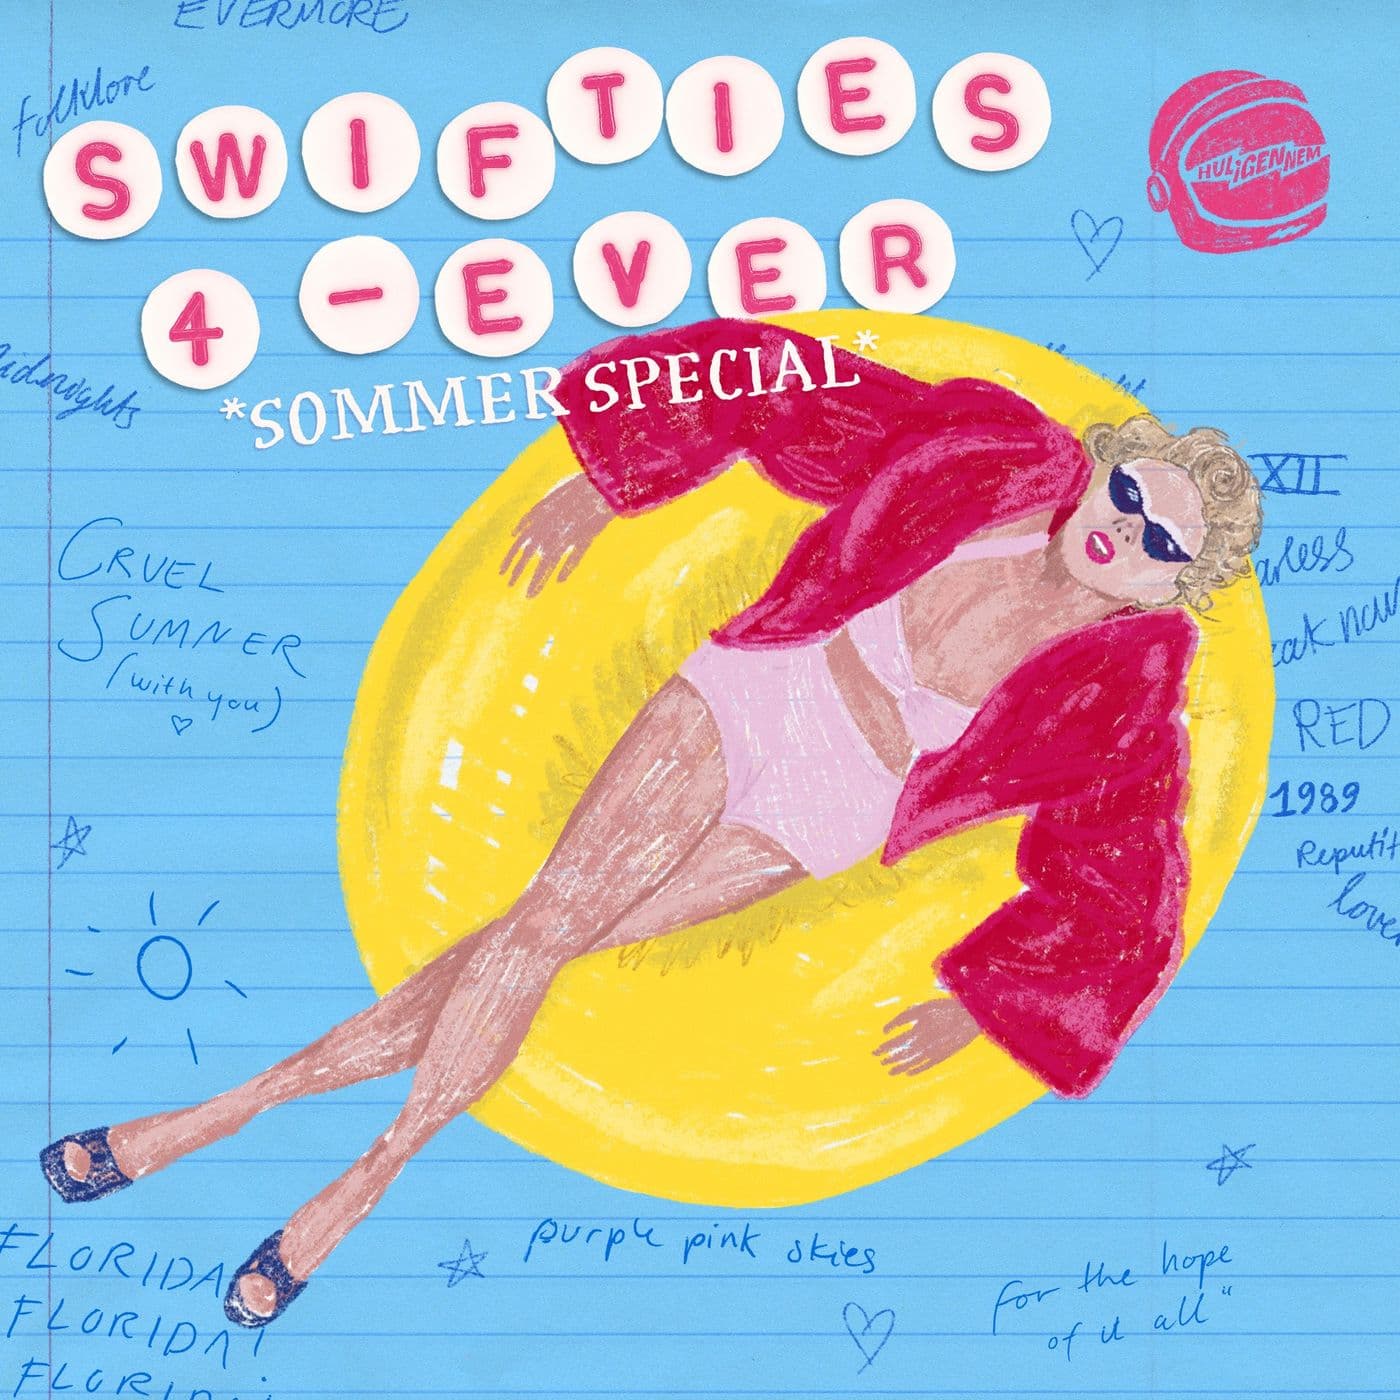 EVERMORE
folklore
SWIFTIES
HULiGENNEM
4-EVER
*SOMMER SPECIAL*
idnights
XII
arless
eak now
CRUEL
SUMMER
(with you)
RED
1989
Reputit
lover
purple pink skies
FLORIDA
FLORIDA!
FLORIDA!
for the hope
of it all"